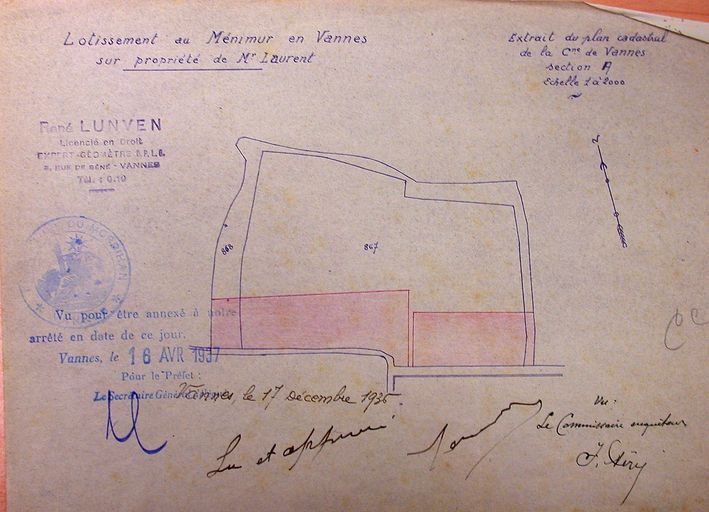 Lotissement au Ménimur en Vannes
sur propriété de Mr Laurent
Extrait du plan cadastral
de la Cne de Vannes
section A
Echelle 1 à 2000
René LUNVEN
Licencié en Droit
EXPERT-GÉOMÈTRE D.P.L.G.
RUE DE SÉNÉ - VANNES
Tél. : 0.10
N
868
867
DU MORBIHAN
Vu pour être annexé à notre
arrêté en date de ce jour.
Vannes, le 16 AVR 1937
Pour le Préfet :
Le Secrétaire Général
Vannes, le 17 Décembre 1936.
Lu et approuvé
Vu :
Le Commissaire enquêteur